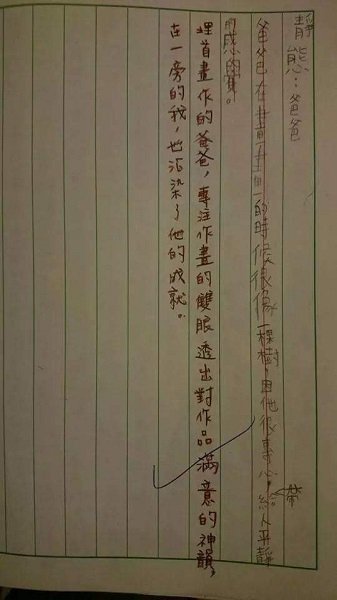 靜態：爸爸
爸爸在畫畫的時候很像一棵樹，因他很專心，給人平靜
的感覺。
帶
埋首畫作的爸爸，專注作畫的雙眼透出對作品滿意的神韻，
在一旁的我，也沾染了他的成就。